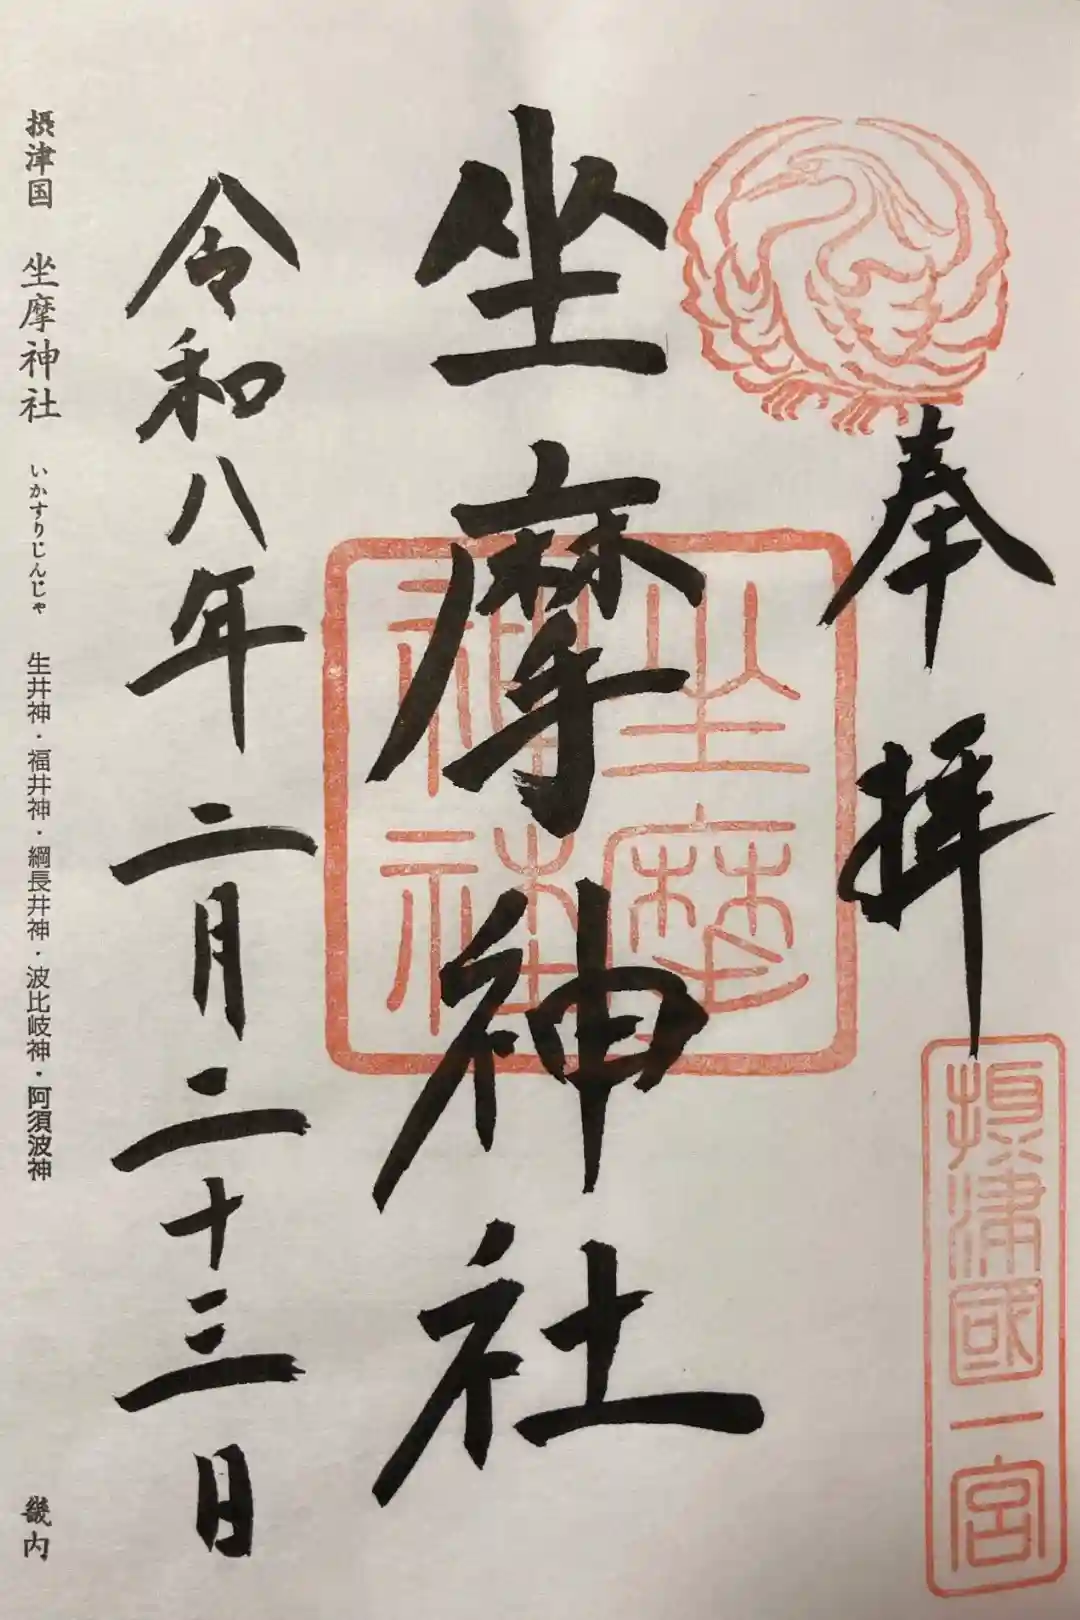 奉拝
摂津國一宮
坐摩神社
坐摩
神社
令和八年二月二十三日
摂津国 坐摩神社 いかすりじんじゃ 生井神・福井神・綱長井神・波比岐神・阿須波神 畿内